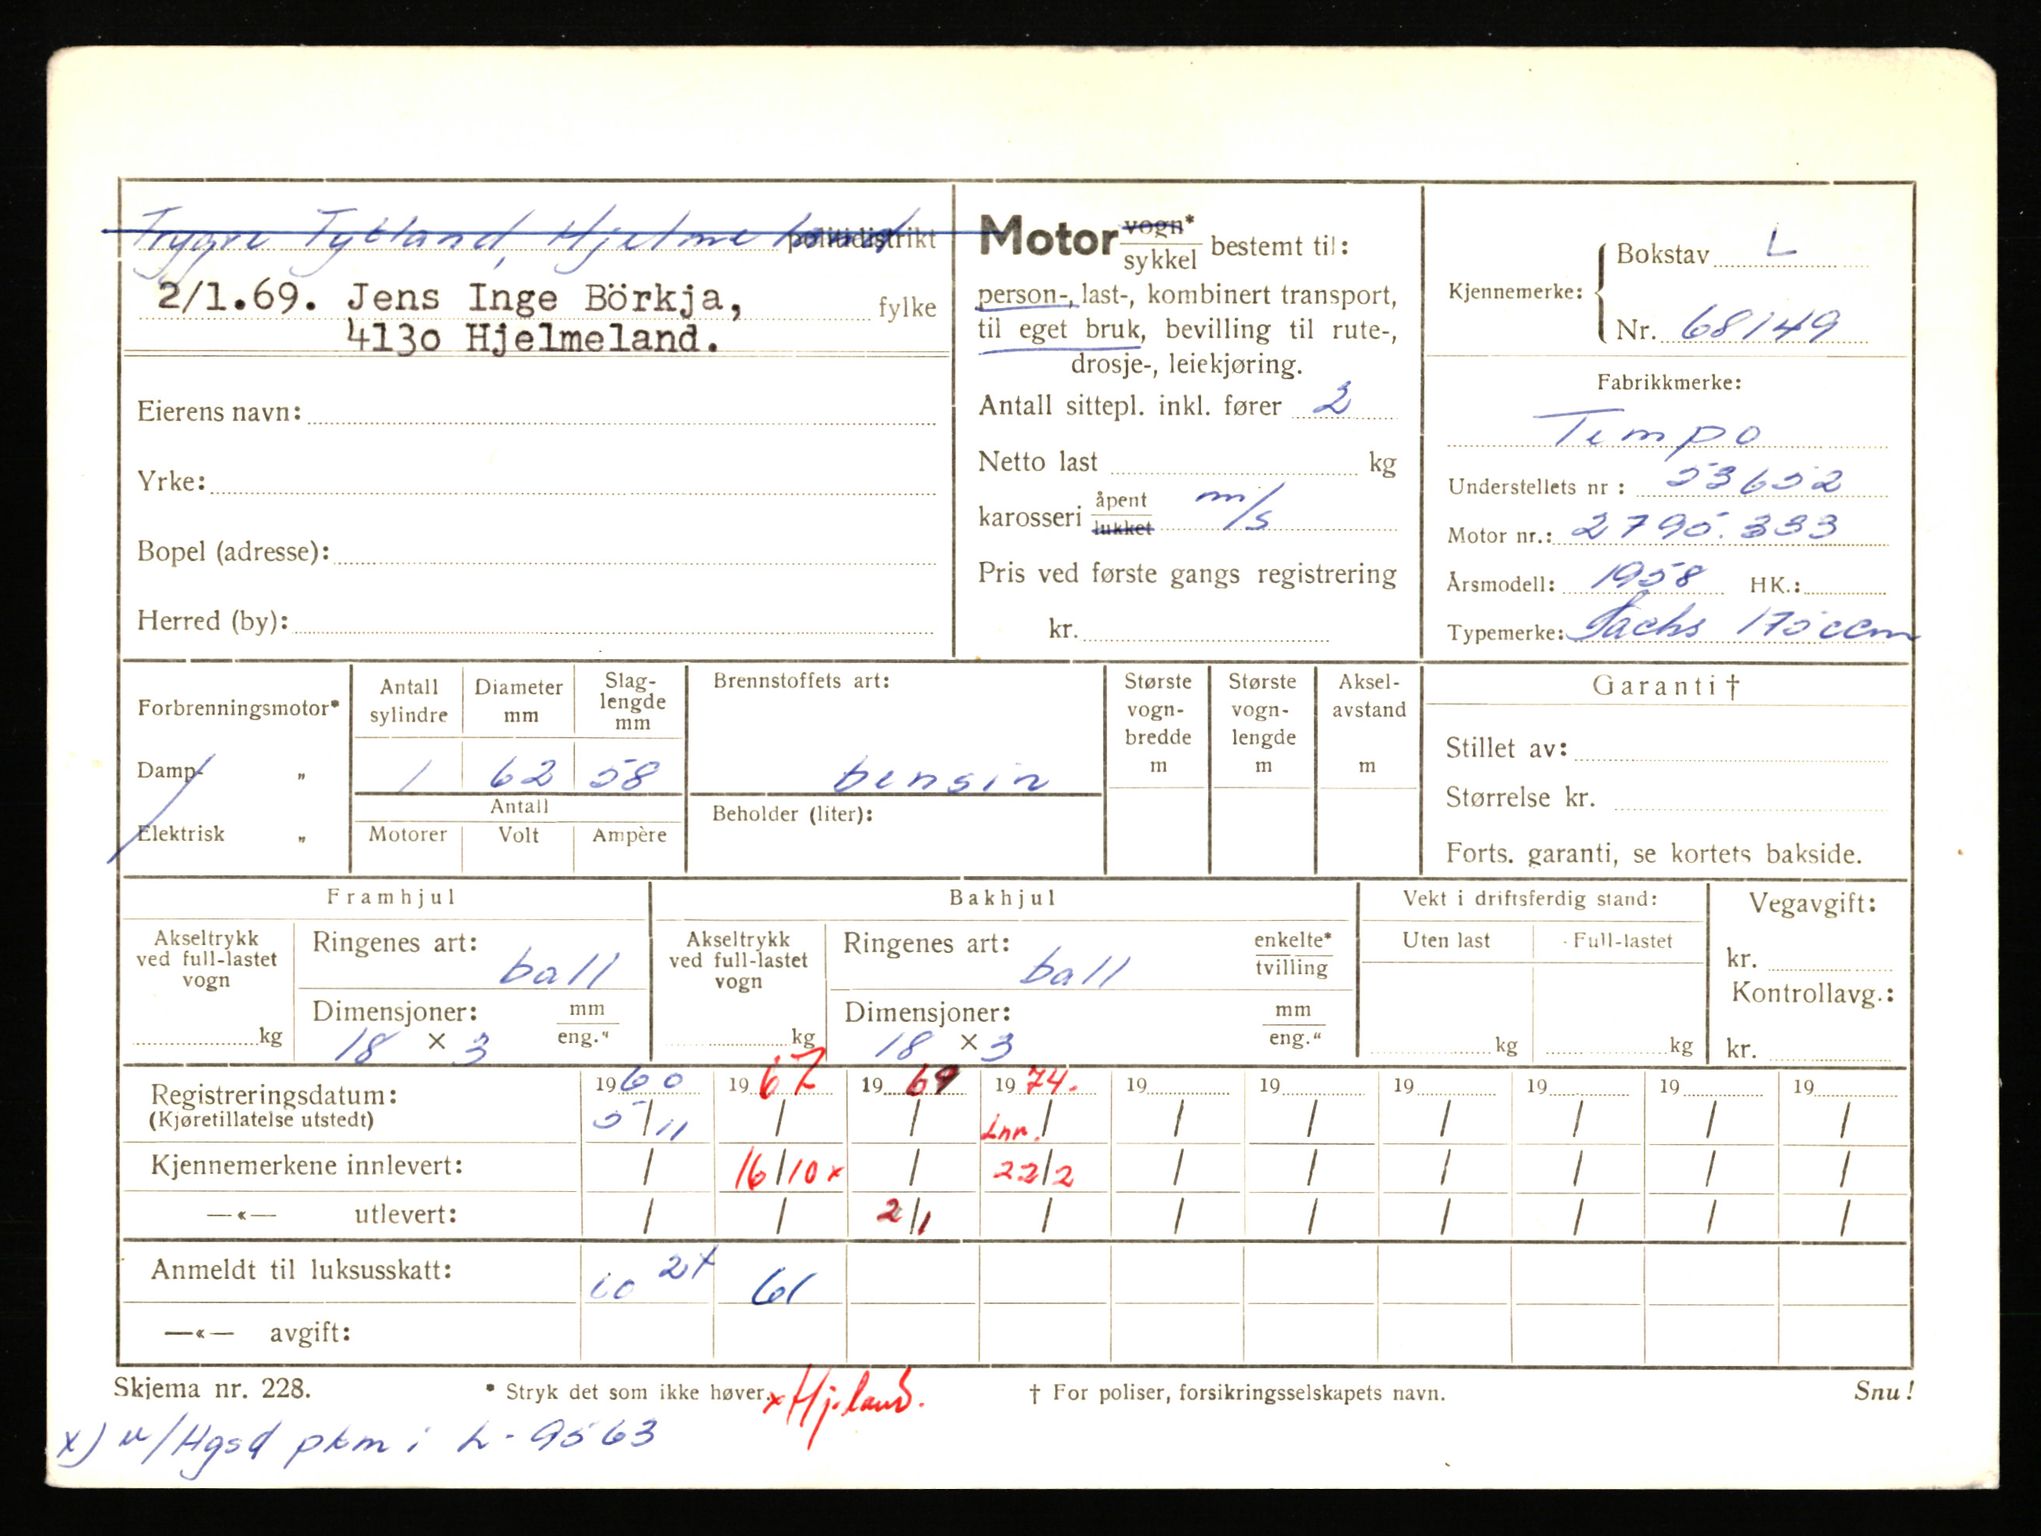 Trygve Tytland, Hjelmeland politidistrikt
2/1.69. Jens Inge Börkja, fylke
4130 Hjelmeland.
Eierens navn:
Yrke:
Bopel (adresse):
Herred (by):
Motor vogn* / sykkel bestemt til:
person-, last-, kombinert transport,
til eget bruk, bevilling til rute-,
drosje-, leiekjøring.
Antall sittepl. inkl. fører 2
Netto last kg
karosseri åpent / lukket m/s
Pris ved første gangs registrering
kr.
Kjennemerke: Bokstav L
Nr. 68149
Fabrikkmerke:
Tempo
Understellets nr : 53652
Motor nr.: 2795.333
Årsmodell: 1958 HK.:
Typemerke: Sachs 175 ccm
Forbrenningsmotor*
Damp- „
Elektrisk „
Antall sylindre Diameter mm Slag-lengde mm
1 62 58
Antall
Motorer Volt Ampère
Brennstoffets art:
bensin
Beholder (liter):
Største vogn-bredde m
Største vogn-lengde m
Aksel-avstand m
Garanti †
Stillet av:
Størrelse kr.
Forts. garanti, se kortets bakside.
Framhjul
Akseltrykk ved full-lastet vogn
kg
Ringenes art:
ball
Dimensjoner: mm / eng."
18 × 3
Bakhjul
Akseltrykk ved full-lastet vogn
kg
Ringenes art: enkelte* / tvilling
ball
Dimensjoner: mm / eng."
18 × 3
Vekt i driftsferdig stand:
Uten last Full-lastet
kg kg
Vegavgift:
kr.
Kontrollavg.:
kr.
Registreringsdatum: 1960 1967 1969 1974. 19 19 19 19 19 19
(Kjøretillatelse utstedt) 5/11 / / Lnr. / / / / / / /
Kjennemerkene innlevert: / 16/10 x / 22/2 / / / / / /
—«— utlevert: / / 2/1 / / / / / / /
Anmeldt til luksusskatt: 60 2x 61
—«— avgift:
Skjema nr. 228. * Stryk det som ikke høver. x Hj.land. † For poliser, forsikringsselskapets navn. Snu!
x) u/Hgsd pkm i L- 9563